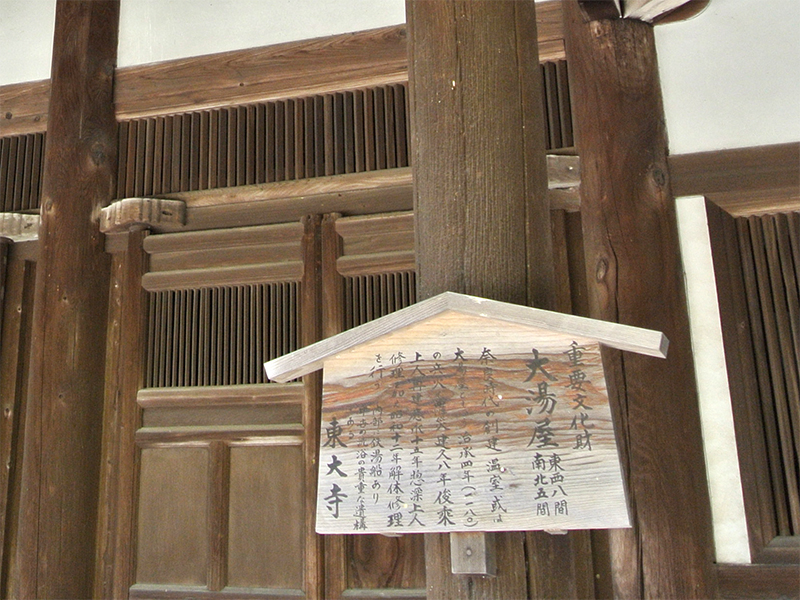 重要文化財
大湯屋 東西八間
南北五間
奈良時代の創建 温室 或は
大湯屋 治承四年(一一八〇)
の兵火 再建久八年俊乗
上人再建応永十五年惣深上人
修理 昭和十二年解体修理
を行 内部に鉄湯船あり
寺院の 浴の貴重な遺構
である
東大寺